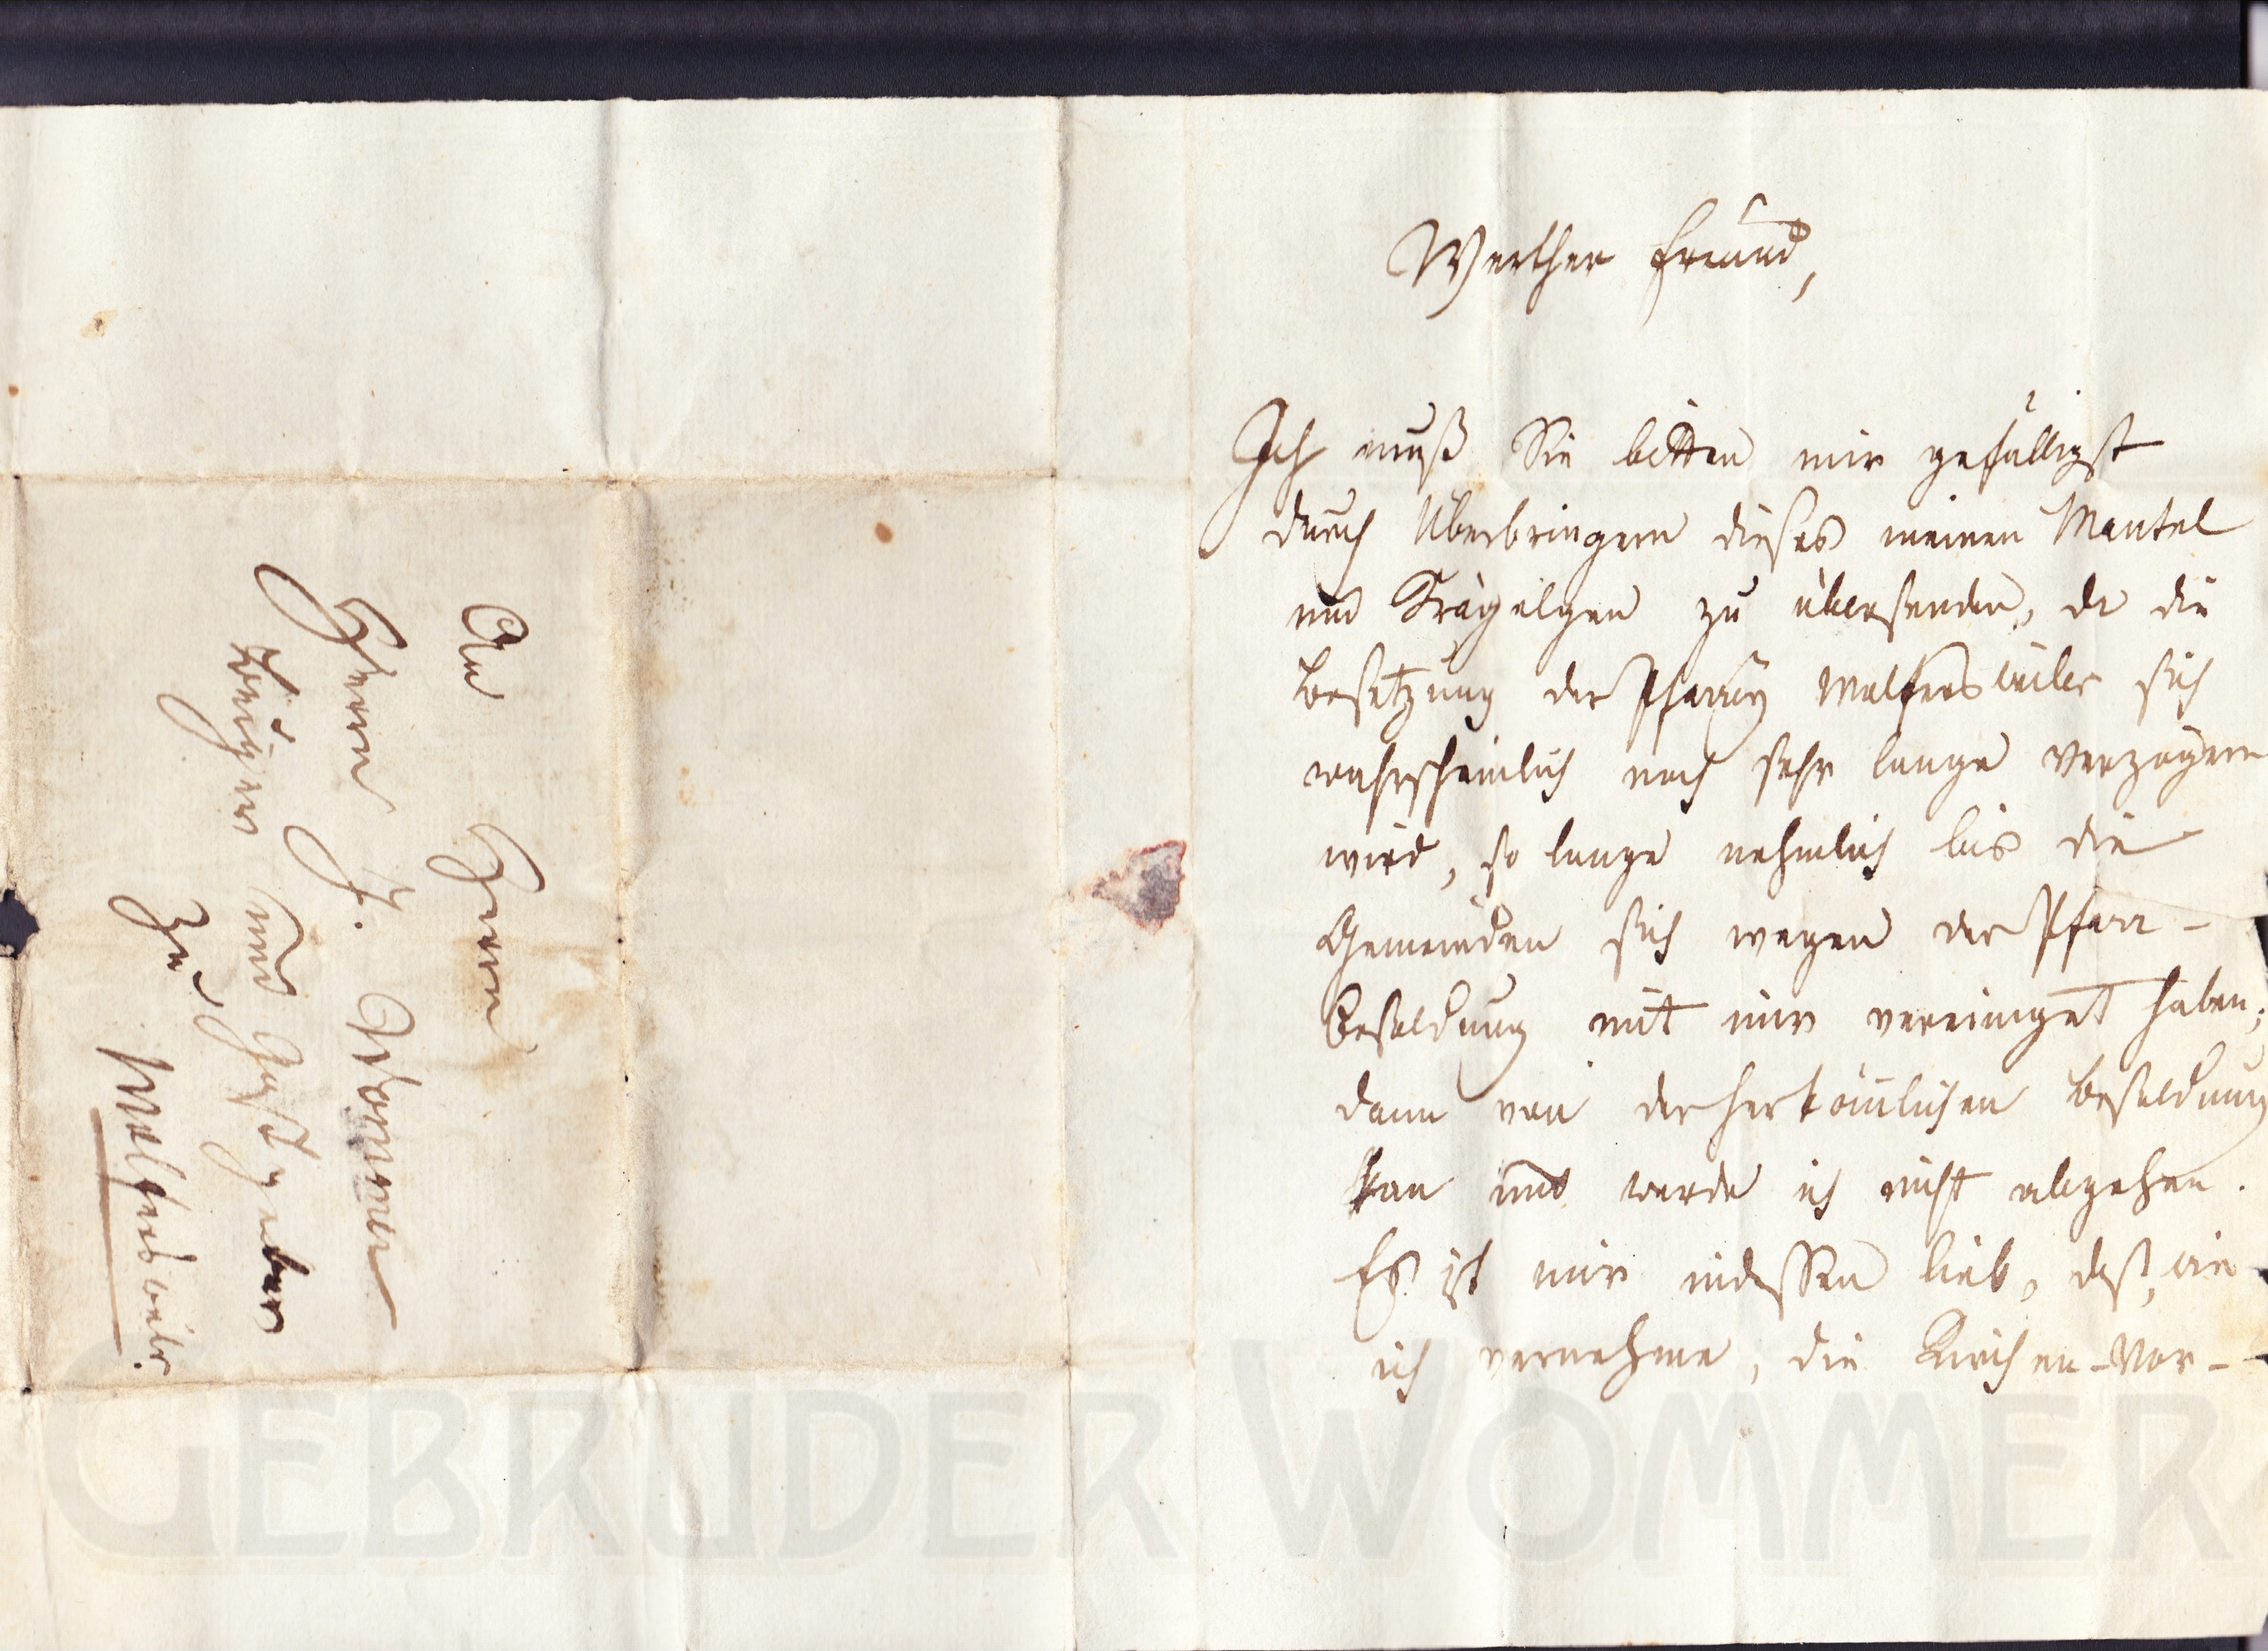 Werther Freund,
Ich muß Sie bitten mir gefälligst
durch Überbringern dieses meinen Mantel
und Krägelgen zu übersenden, da die
Besetzung der Pfarrey Wolfersweiler sich
wahrscheinlich noch sehr lange verzögern
wird, so lange nehmlich bis die
Gemeinden sich wegen der Pfarr-
Besoldung mit mir vereiniget haben;
dann von der herkömlichen Besoldung
kan und werde ich nicht abgehen.
Es ist mir indessen lieb, daß, wie
ich vernehme, die Kirchen-Vor-
An Herrn
Herrn J. Wommer
Bürger und Gastgeber
Zu Wolfersweilr.
GEBRÜDER WOMMER